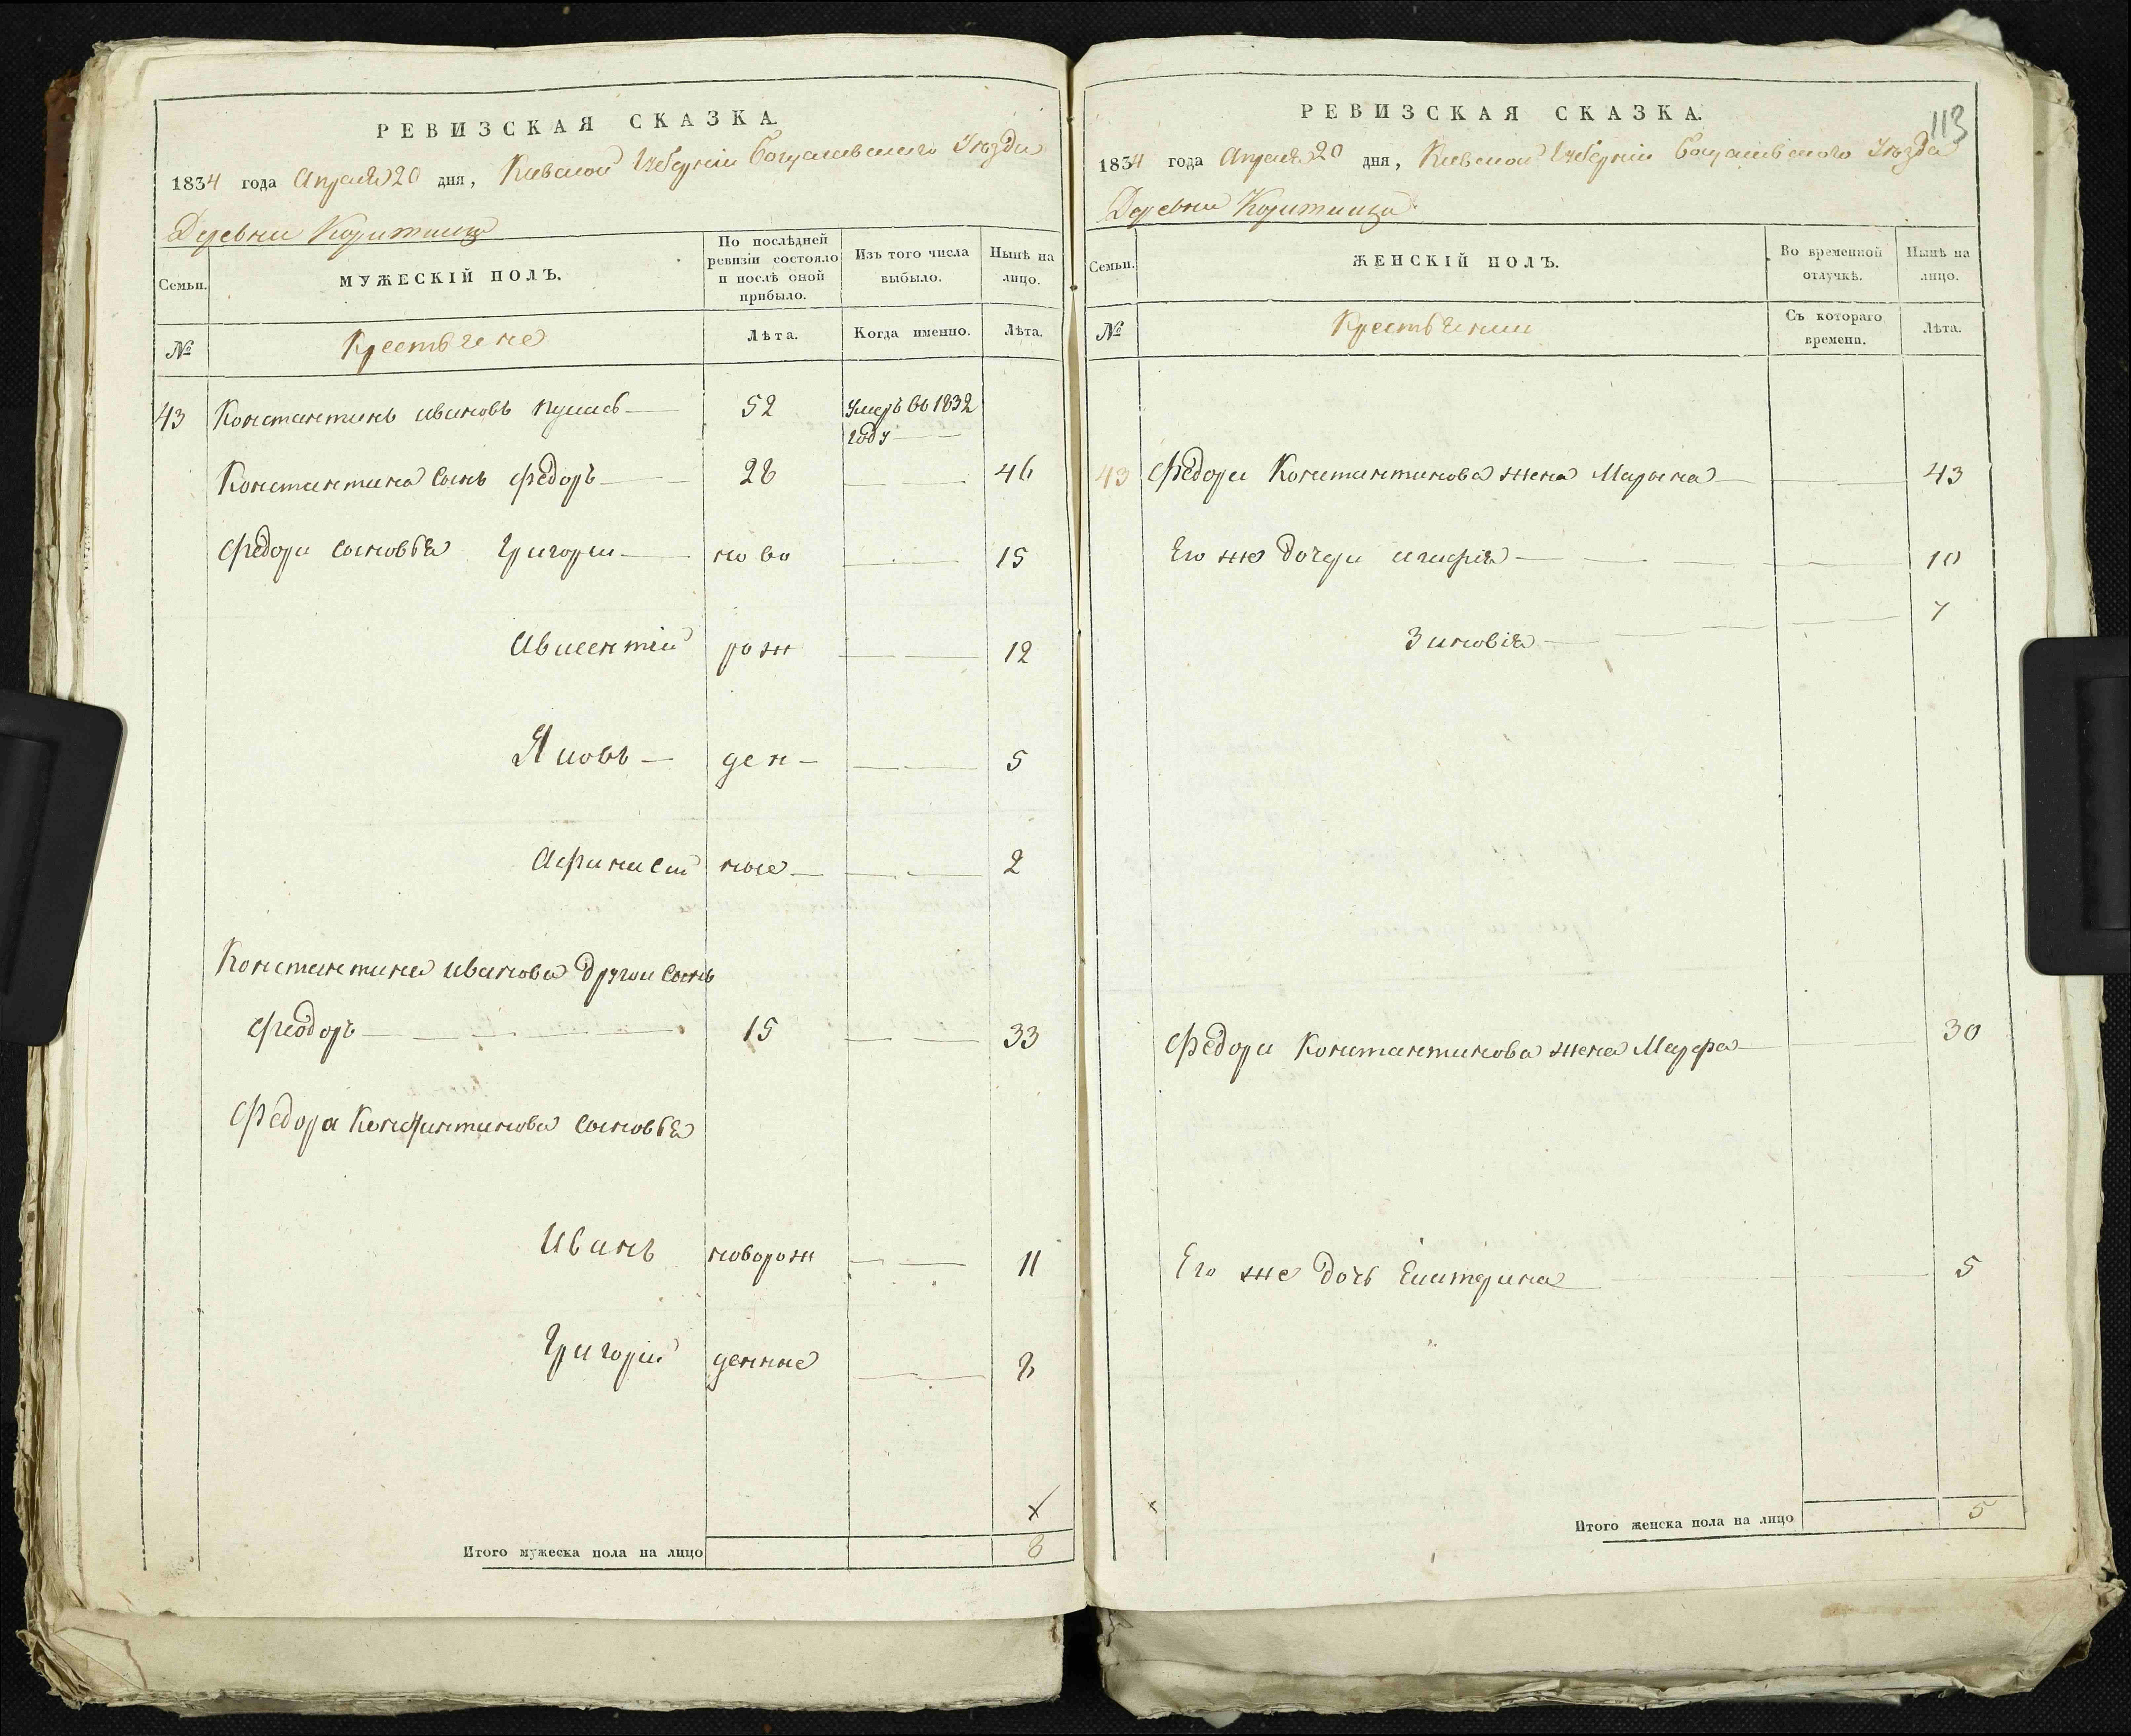 РЕВИЗСКАЯ СКАЗКА.
1834 года Апреля 20 дня, Киевской Губерніи Богуславского Уезда
Деревни
По послѣдней ревизіи состояло и послѣ оной прибыло.
Изъ того числа выбыло.
Нынѣ на лицо.
Семьи.
МУЖЕСКІЙ ПОЛЪ.
№
Крестьяне
Лѣта.
Когда именно.
Лѣта.
43 Константинъ Ивановъ 52 Умеръ въ 1832 году
Константина Сынъ Федоръ 28 46
Федора Сыновья Григорій ново 15
Авксентій рож 12
Яковъ ден 5
Афанасій ное 2
Константина Иванова другои Сынъ
Феодоръ 15 33
Федора Константинова Сыновья
Иванъ новорож 11
Григорій денные 8
х
Итого мужеска пола на лицо 8
113
РЕВИЗСКАЯ СКАЗКА.
1834 года Апреля 20 дня, Киевской Губерніи Богуславского Уезда
Деревни
Семьи.
ЖЕНСКІЙ ПОЛЪ.
Во временной отлучкѣ.
Нынѣ на лицо.
№
Крестьянки
Съ котораго времени.
Лѣта.
43 Федора Константинова жена Марьяна 43
Его же дочери Агафія 10
Зиновія 7
Федора Константинова жена Марфа 30
Его же дочь Екатерина 5
Итого женска пола на лицо 5